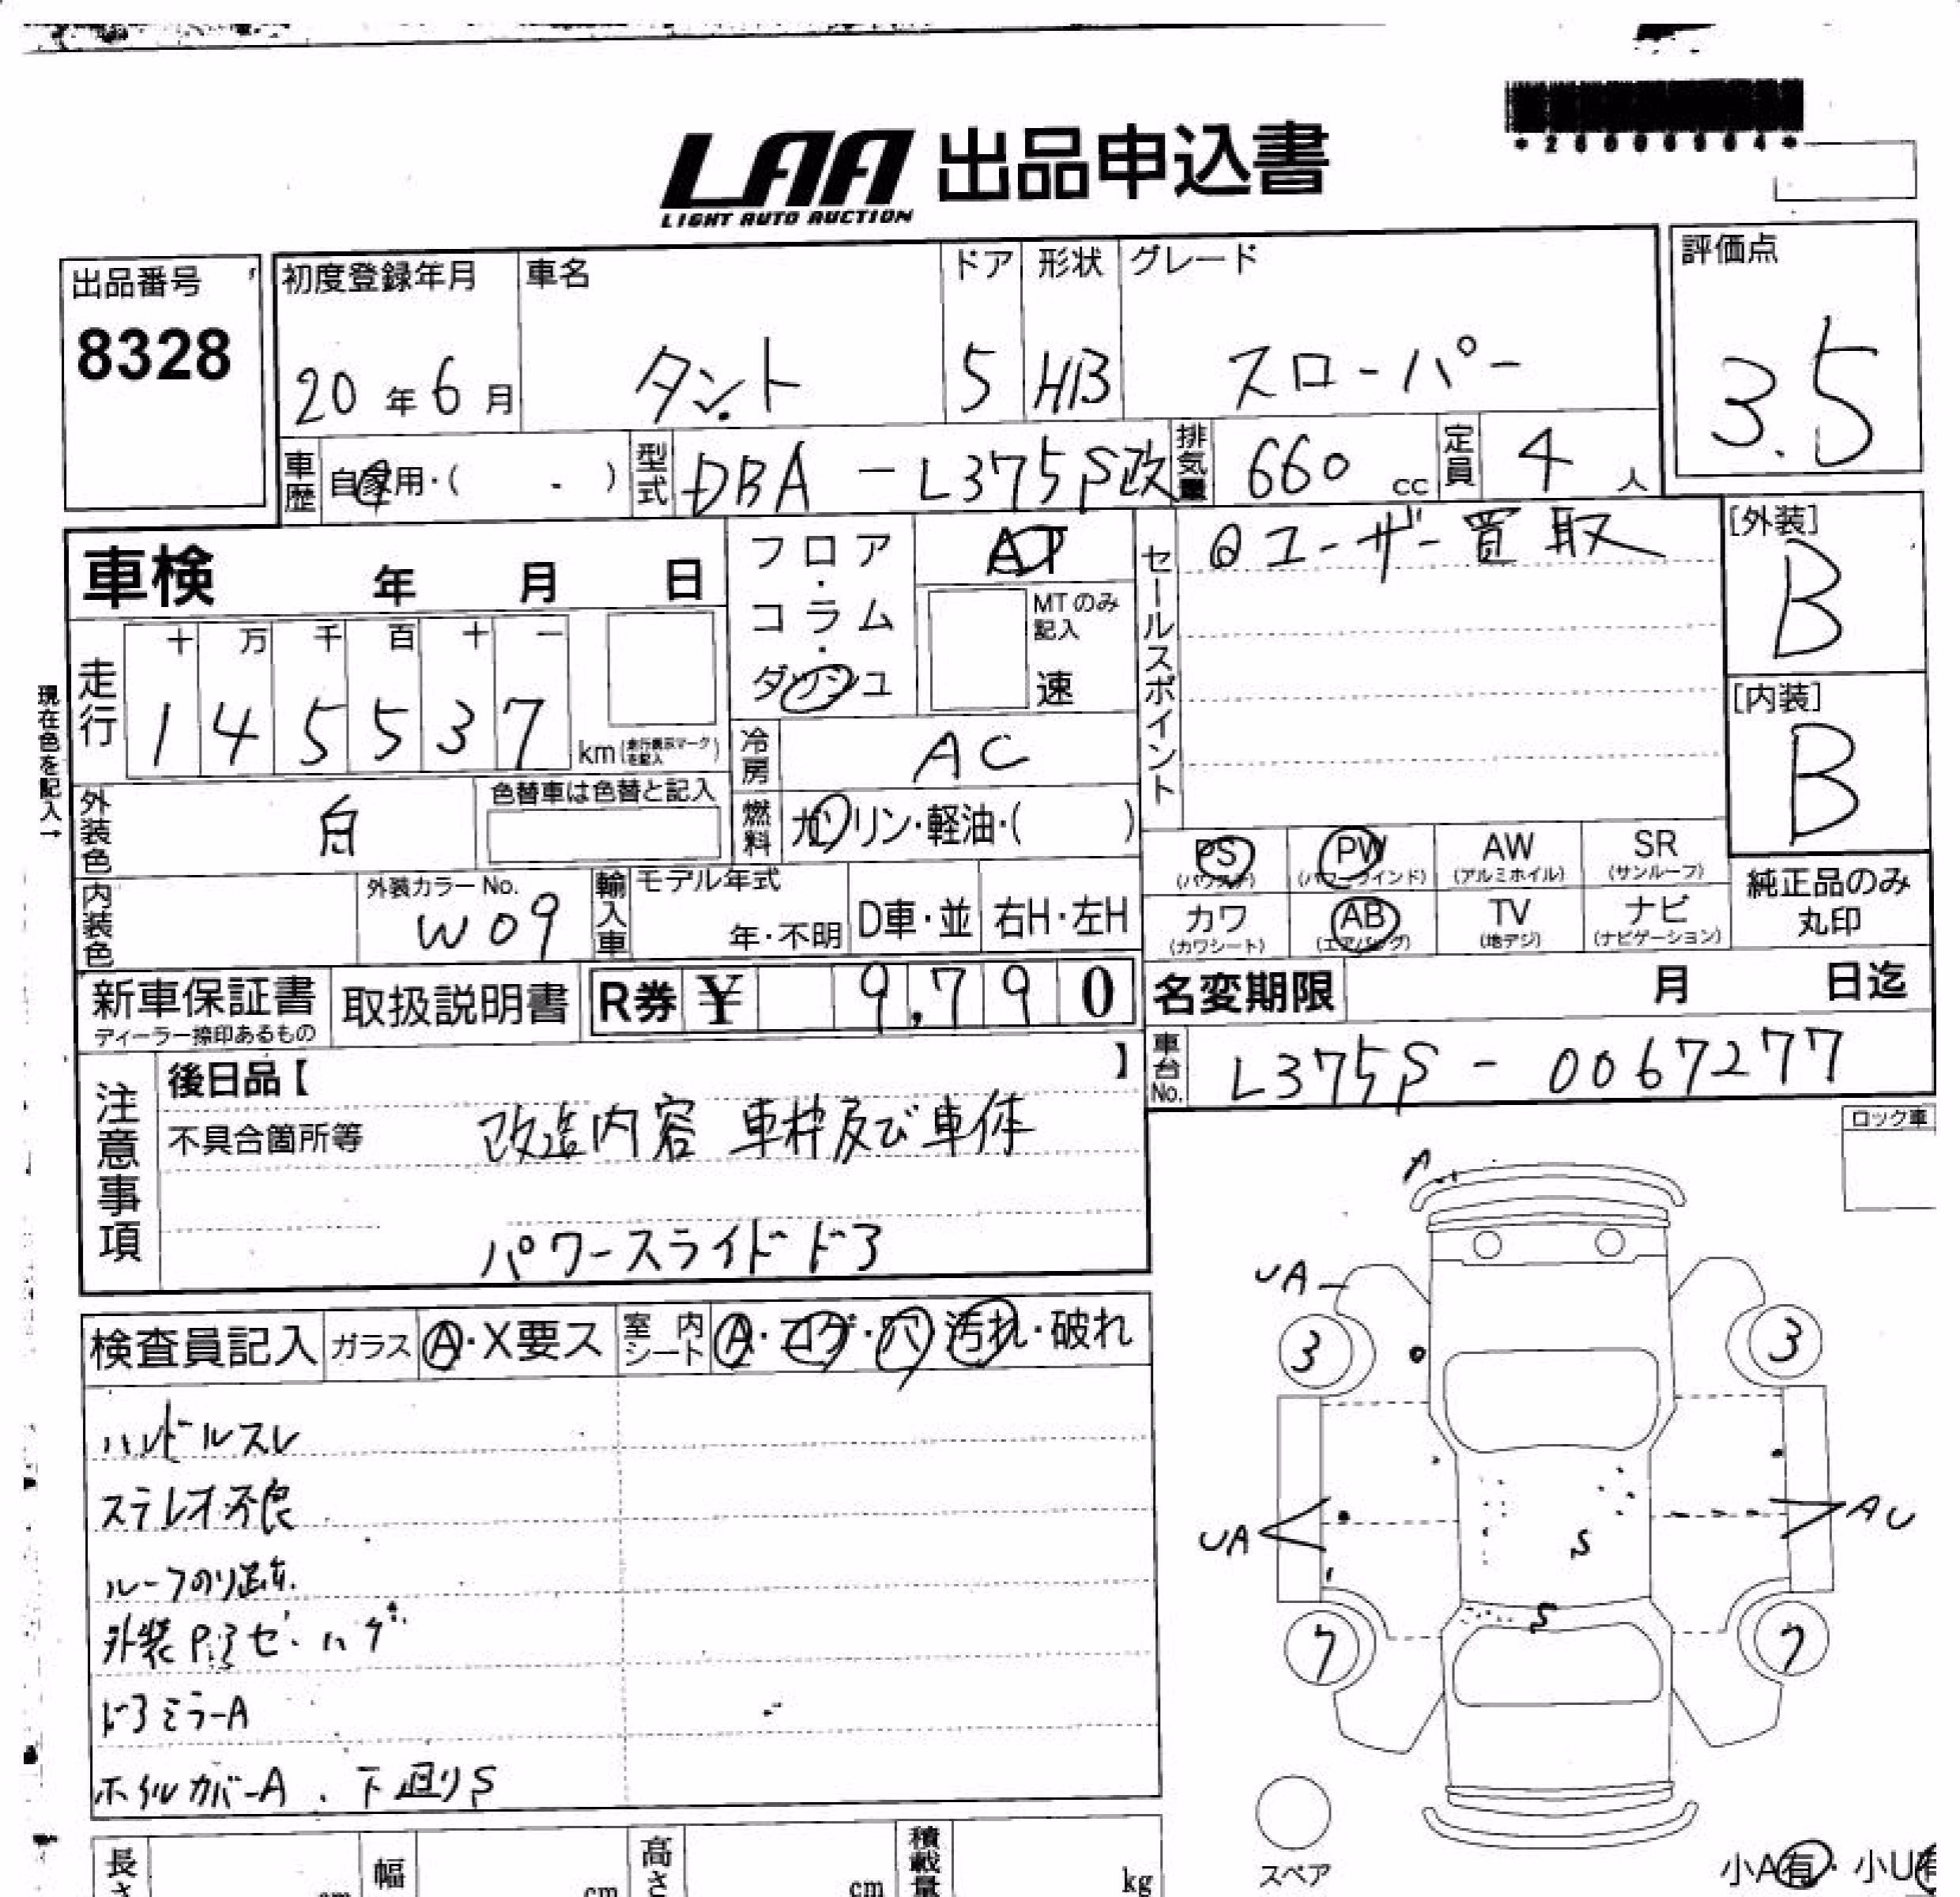 LAA 出品申込書
LIGHT AUTO AUCTION
出品番号
8328
初度登録年月
20年6月
車名
タント
ドア
5
形状
HB
グレード
スローパー
評価点
3.5
車歴
自家用・( ・ )
型式
DBA-L375S改
排気量
660cc
定員
4人
車検 年 月 日
フロア・コラム・ダッシュ
AT
MTのみ記入
速
セールスポイント
①ユーザー買取
[外装]
B
[内装]
B
現在色を記入→
走行
十 万 千 百 十 一
1 4 5 5 3 7 km
(走行表示マークを記入)
冷房
AC
外装色
白
色替車は色替と記入
燃料
ガソリン・軽油・( )
内装色
外装カラーNo.
W09
輸入車
モデル年式
年・不明
D車・並
右H・左H
PS
PW
(パワーウインド)
AW
(アルミホイル)
SR
(サンルーフ)
カワ
(カワシート)
AB
(エアバッグ)
TV
(地デジ)
ナビ
(ナビゲーション)
純正品のみ
丸印
新車保証書
ディーラー捺印あるもの
取扱説明書
R券 ¥ 9,790
名変期限 月 日迄
車台No.
L375S-0067277
注意事項
後日品【 】
不具合箇所等
改造内容 車枠及び車体
パワースライドドア
ロック車
検査員記入
ガラス
A・X要ス
室内シート
A・コゲ・穴・汚れ・破れ
ハンドルスレ
ステレオ不良
ルーフのり跡有
外装P.アセ・ハゲ
ドアミラーA
ホイルカバーA、下廻りS
A
UA
3
3
UA
AU
S
S
7
7
スペア
長さ
cm
幅
cm
高さ
cm
積載量
kg
小A有・小U有